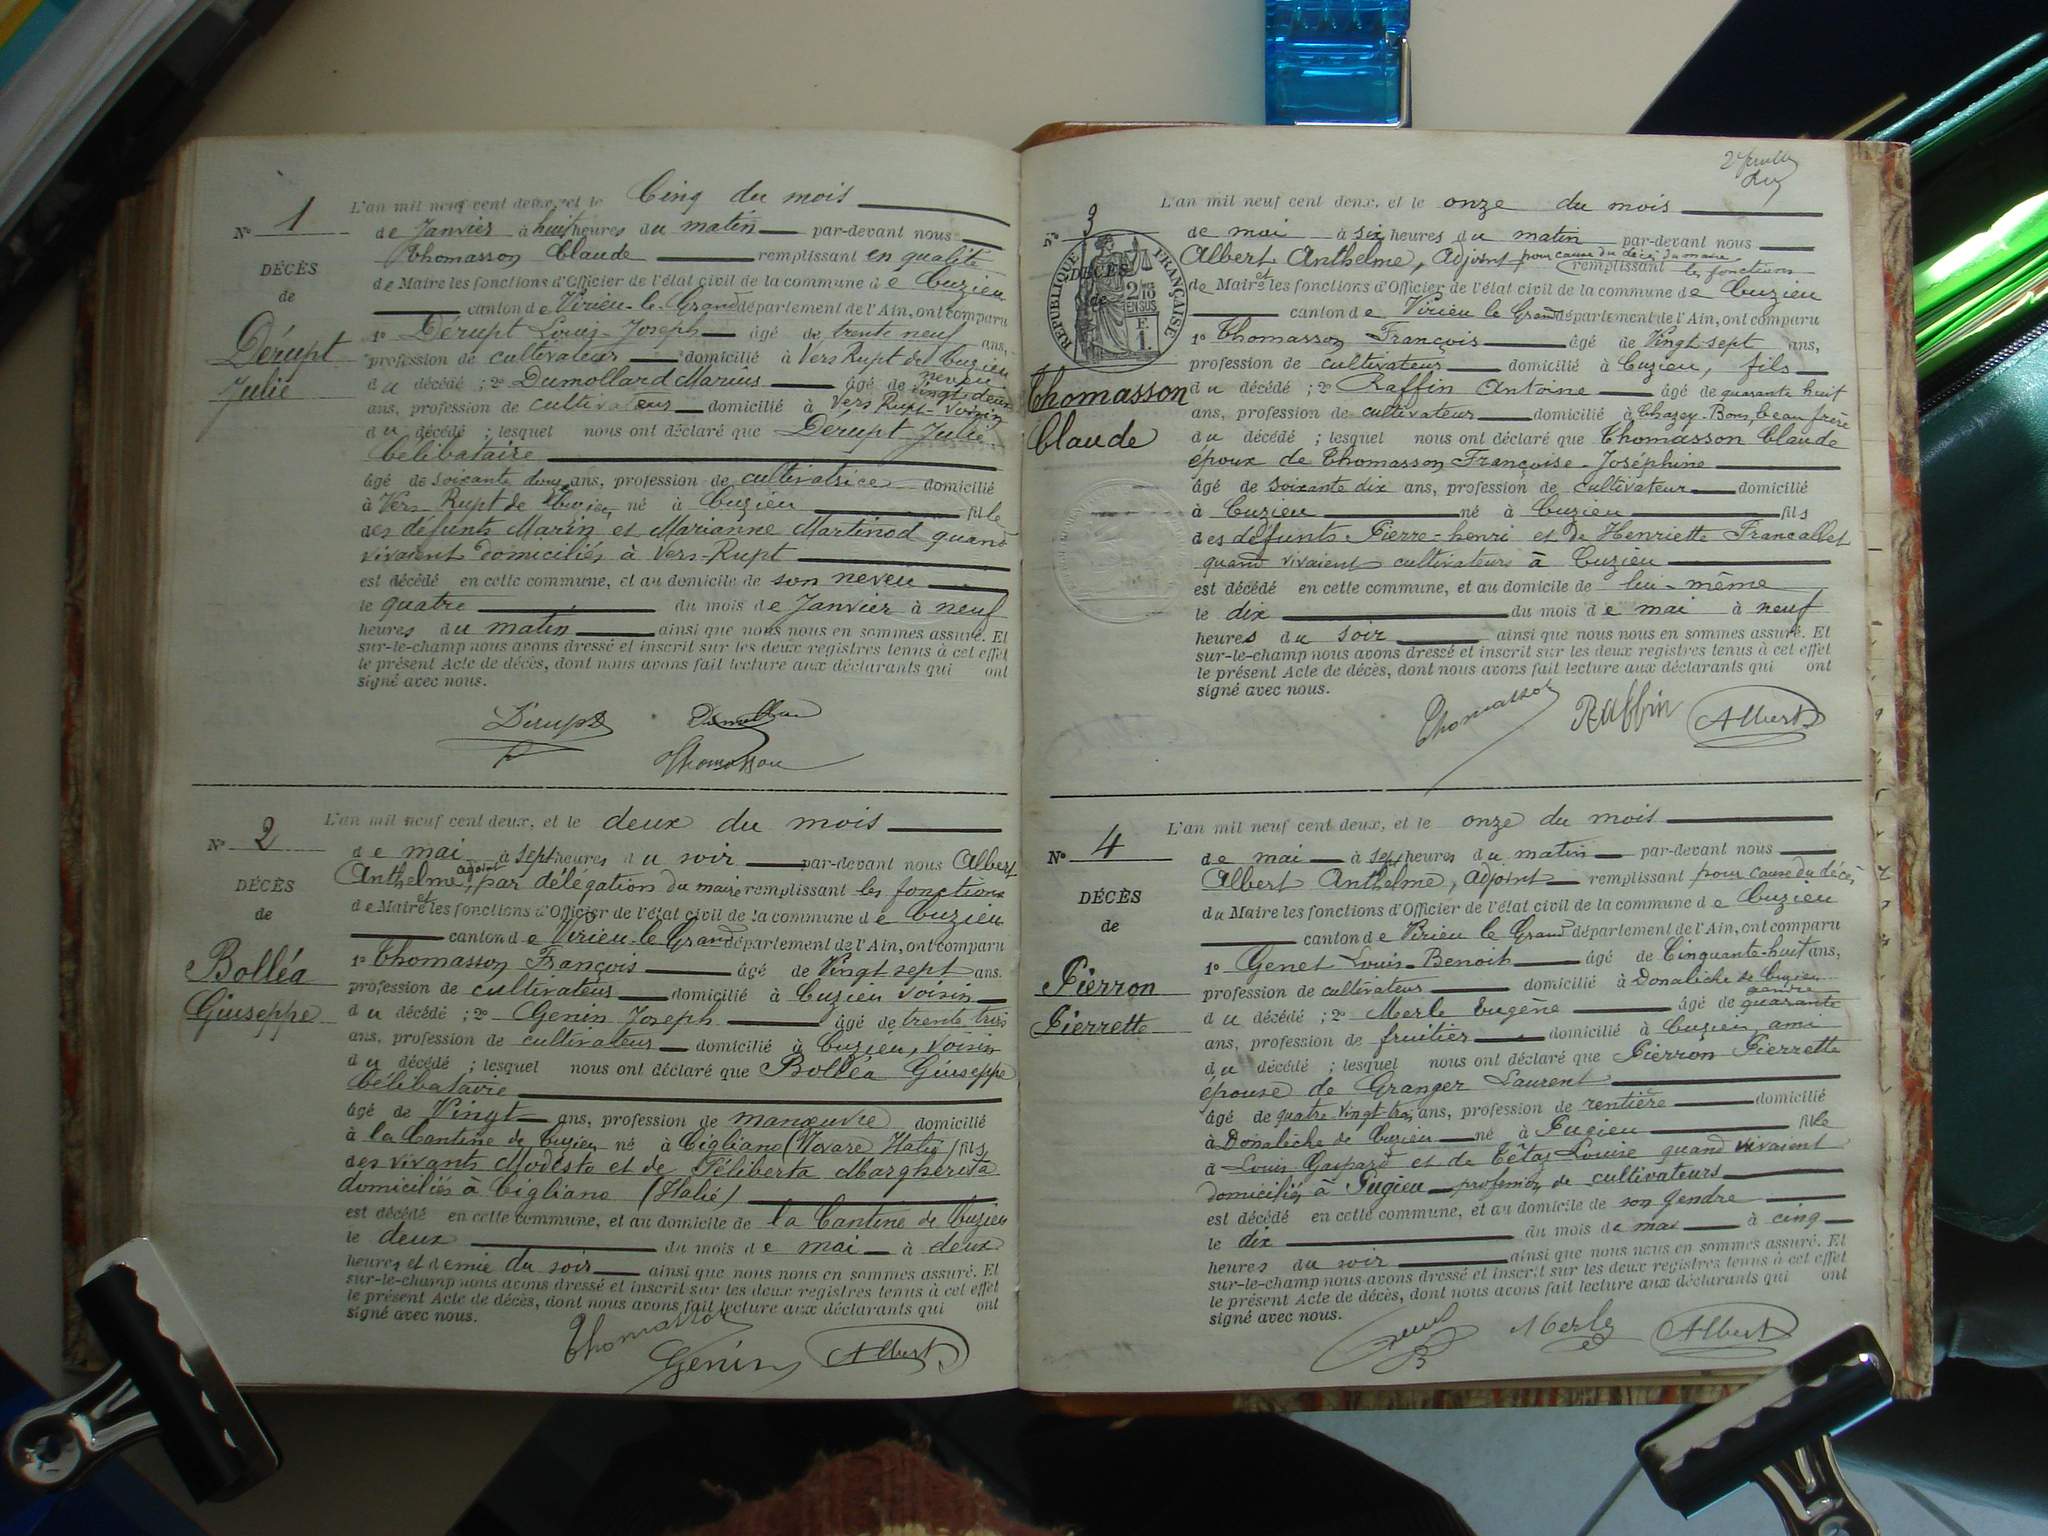 L'an mil neuf cent deux, et le Cinq du mois
No 1
de Janvier à huit heures du matin par-devant nous
Thomasson Claude remplissant en qualité
DÉCÈS
de Maire les fonctions d'Officier de l'état civil de la commune de Cuzieu
de
canton de Virieu-le-Grand département de l'Ain, ont comparu
Dérupt
Julie
1o Dérupt Louis-Joseph âgé de trente neuf ans,
profession de cultivateur domicilié à Vers Rupt de Cuzieu
neveu
du décédé ; 2o Dumollard Marius âgé de Vingt-deux
ans, profession de cultivateur domicilié à Vers Rupt-Voisin
du décédé ; lesquel nous ont déclaré que Dérupt Julie
Célibataire
âgé de soixante ans, profession de cultivatrice domicilié
à Vers Rupt de Cuzieu né à Cuzieu fille
des défunts Marin et Marianne Martinod quand
vivaient domiciliés à Vers-Rupt
est décédé en cette commune, et au domicile de son neveu
le quatre du mois de Janvier à neuf
heures du matin ainsi que nous nous en sommes assuré. Et
sur-le-champ nous avons dressé et inscrit sur les deux registres tenus à cet effet
le présent Acte de décès, dont nous avons fait lecture aux déclarants qui ont
signé avec nous.
Dérupt Dumollard
Thomasson
L'an mil neuf cent deux, et le deux du mois
No 2
de mai à sept heures du soir par-devant nous Albert
Anthelme, adjoint, par délégation du maire remplissant les fonctions
DÉCÈS
de Maire et les fonctions d'Officier de l'état civil de la commune de Cuzieu
de
canton de Virieu-le-Grand département de l'Ain, ont comparu
Bolléa
Giuseppe
1o Thomasson François âgé de Vingt sept ans.
profession de cultivateur domicilié à Cuzieu voisin
du décédé ; 2o Genin Joseph âgé de trente trois
ans, profession de cultivateur domicilié à Cuzieu, voisin
du décédé ; lesquel nous ont déclaré que Bolléa Giuseppe
Célibataire
âgé de Vingt ans, profession de manœuvre domicilié
à la Cantine de Cuzieu né à Cigliano (Novare Italie) fils
des vivants Modesto et de Féliberta Margherita
domiciliés à Cigliano (Italie)
est décédé en cette commune, et au domicile de la Cantine de Cuzieu
le deux du mois de mai à deux
heures et demie du soir ainsi que nous nous en sommes assuré. Et
sur-le-champ nous avons dressé et inscrit sur les deux registres tenus à cet effet
le présent Acte de décès, dont nous avons fait lecture aux déclarants qui ont
signé avec nous.
Thomasson
Genin Albert
2e feuillet
L'an mil neuf cent deux, et le onze du mois
No 3
de mai à six heures du matin par-devant nous
Albert Anthelme, Adjoint pour cause du décès du maire
remplissant les fonctions
RÉPUBLIQUE FRANÇAISE
DÉCÈS
de
2/10 EN SUS
F. 1.
de Maire et les fonctions d'Officier de l'état civil de la commune de Cuzieu
canton de Virieu le Grand département de l'Ain, ont comparu
1o Thomasson François âgé de Vingt-sept ans,
profession de cultivateur domicilié à Cuzieu, fils
Thomasson
Claude
du décédé ; 2o Raffin Antoine âgé de quarante huit
ans, profession de cultivateur domicilié à Chazey-Bons, beau frère
du décédé ; lesquel nous ont déclaré que Thomasson Claude
époux de Thomasson Françoise-Joséphine
âgé de soixante dix ans, profession de cultivateur domicilié
à Cuzieu né à Cuzieu fils
des défunts Pierre-henri et de Henriette Francallet
quand vivaient cultivateurs à Cuzieu
est décédé en cette commune, et au domicile de lui-même
le dix du mois de mai à neuf
heures du soir ainsi que nous nous en sommes assuré. Et
sur-le-champ nous avons dressé et inscrit sur les deux registres tenus à cet effet
le présent Acte de décès, dont nous avons fait lecture aux déclarants qui ont
signé avec nous.
Thomasson Raffin Albert
L'an mil neuf cent deux, et le onze du mois
No 4
de mai à sept heures du matin par-devant nous
Albert Anthelme, adjoint remplissant pour cause du décès
DÉCÈS
du Maire les fonctions d'Officier de l'état civil de la commune de Cuzieu
de
canton de Virieu le Grand département de l'Ain, ont comparu
Pierron
Pierrette
1o Genet Louis-Benoit âgé de Cinquante-huit ans,
profession de cultivateur domicilié à Donalèche de Cuzieu
gendre
du décédé ; 2o Merle Eugène âgé de quarante
ans, profession de fruitier domicilié à Cuzieu, ami
du décédé ; lesquel nous ont déclaré que Pierron Pierrette
épouse de Granger Laurent
âgé de quatre-vingt-trois ans, profession de rentière domicilié
à Donalèche de Cuzieu né à Pugieu fille
à Louis Gaspard et de Tétaz Louise quand vivaient
domiciliés à Pugieu profession de cultivateurs
est décédé en cette commune, et au domicile de son gendre
le dix du mois de mai à cinq
heures du soir ainsi que nous nous en sommes assuré. Et
sur-le-champ nous avons dressé et inscrit sur les deux registres tenus à cet effet
le présent Acte de décès, dont nous avons fait lecture aux déclarants qui ont
signé avec nous.
Merle Albert